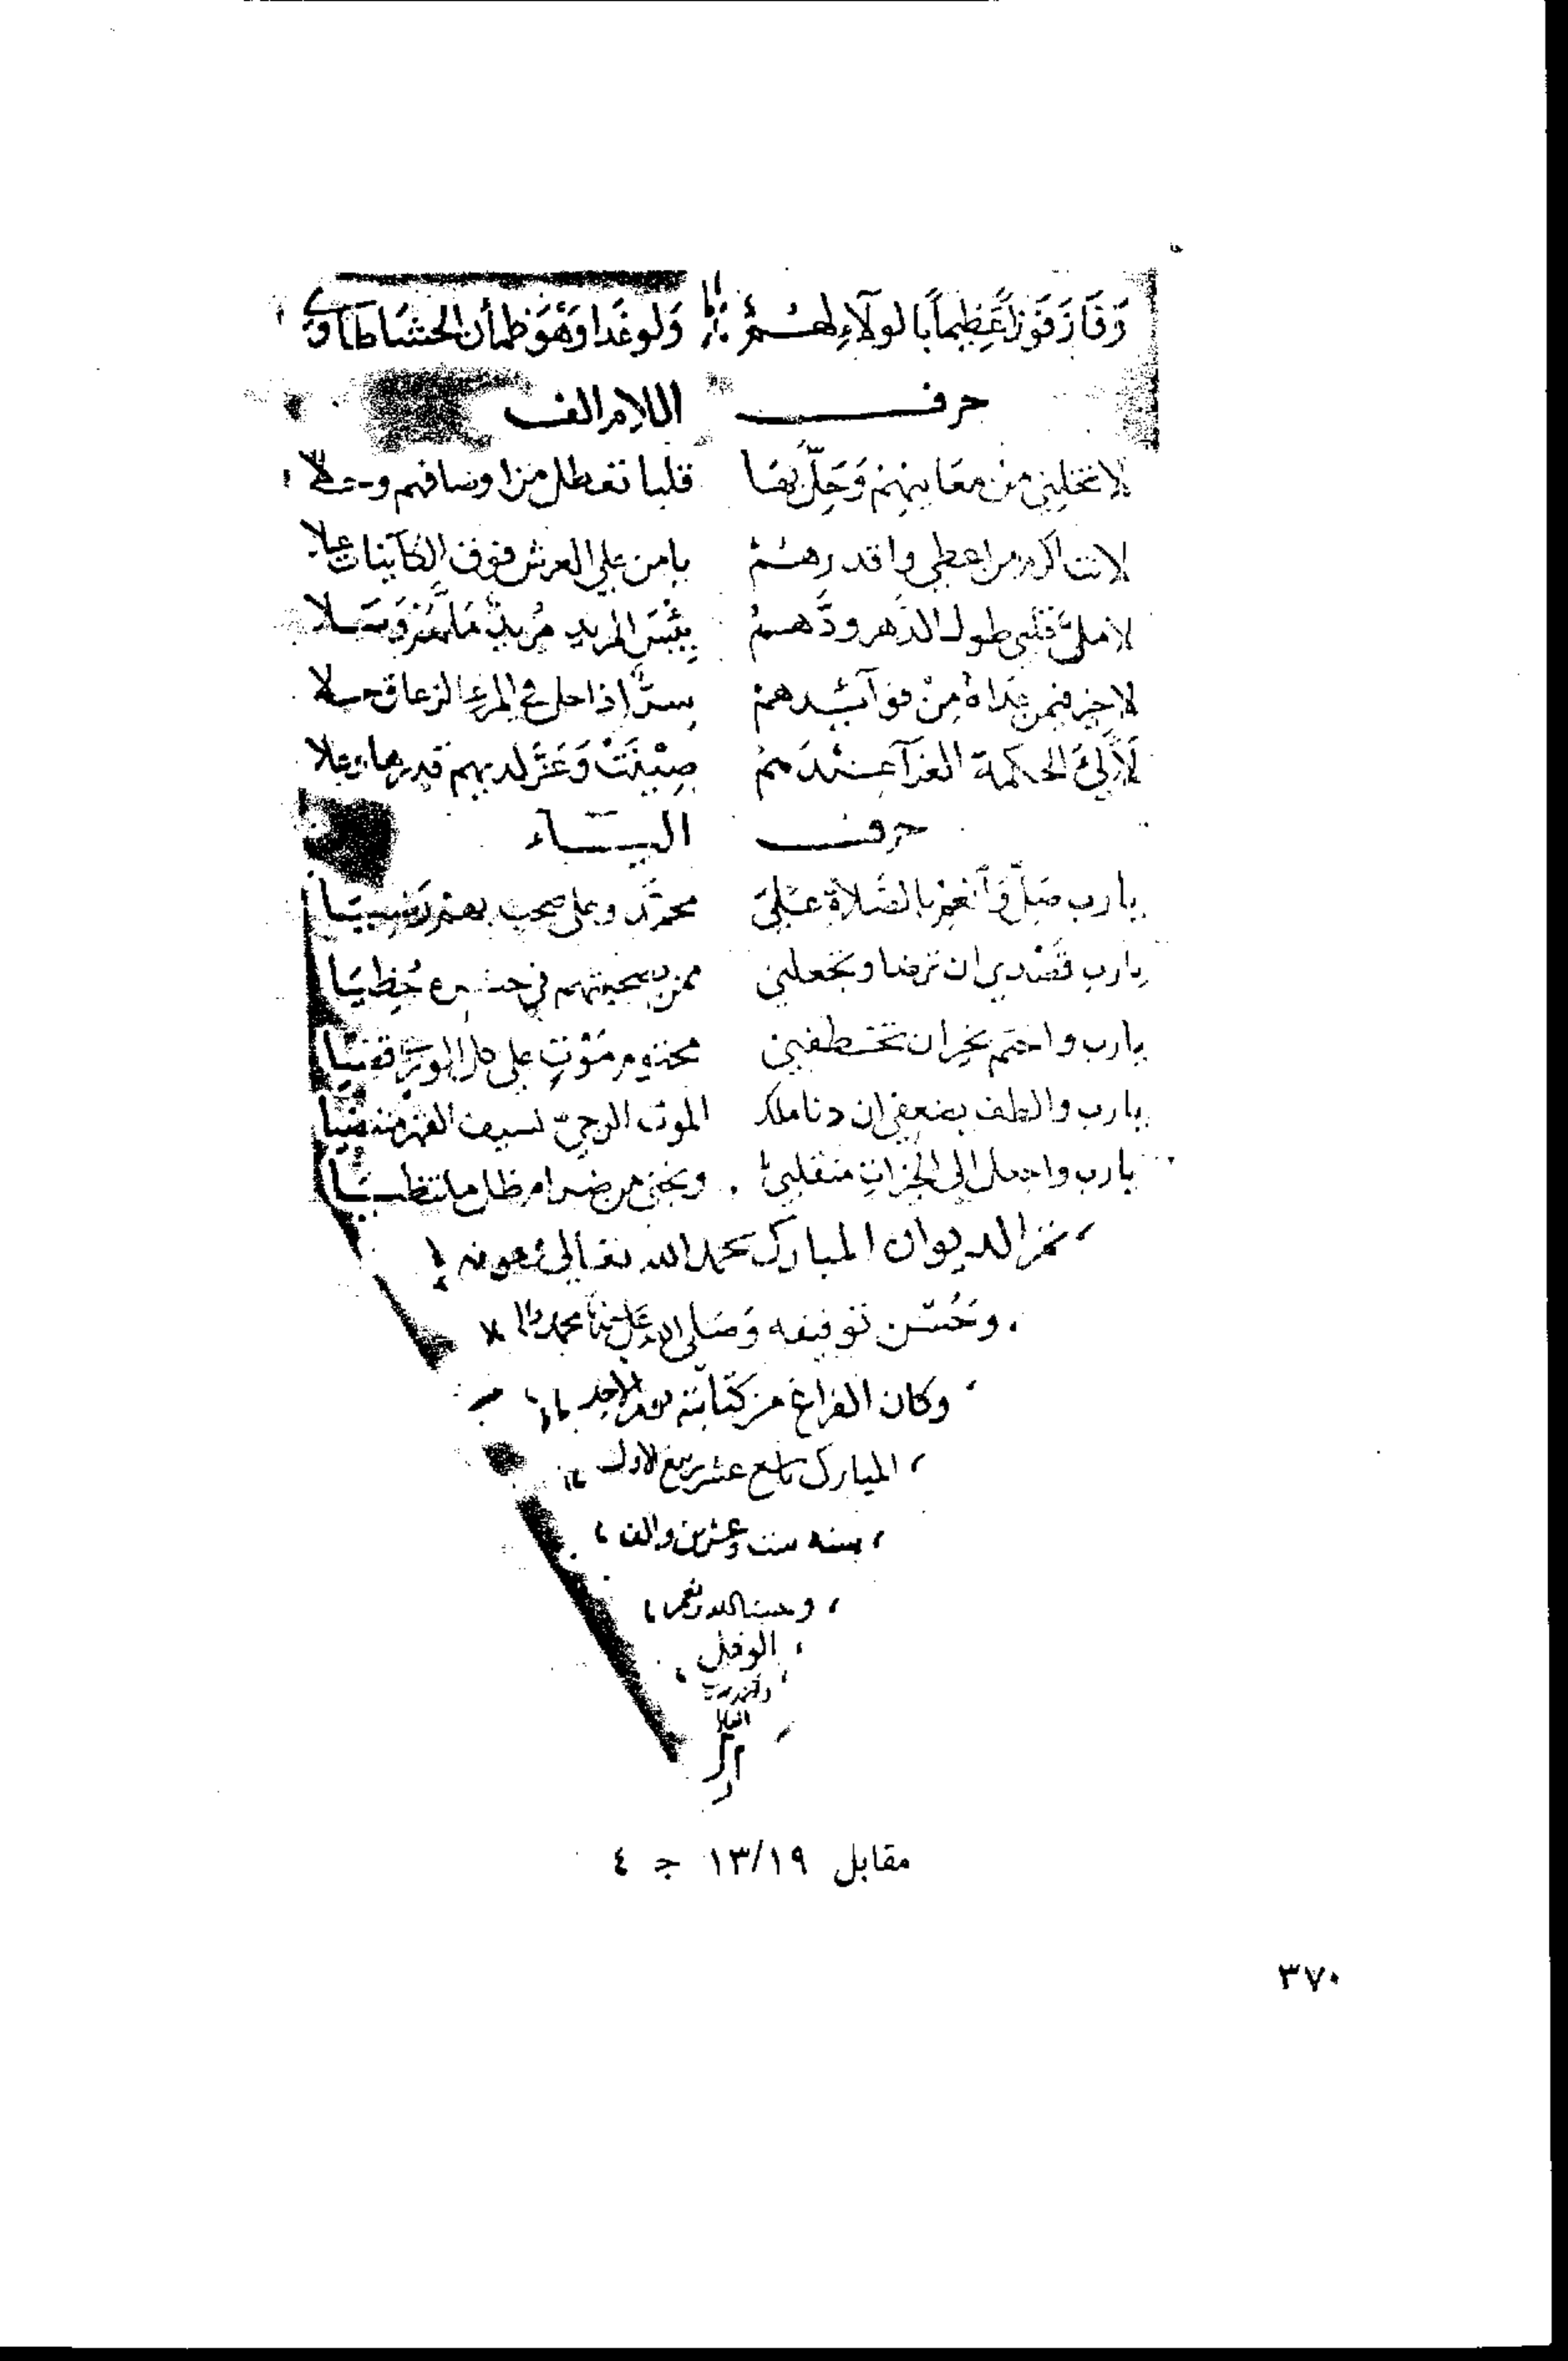 وَفَازَ فَوْزاً عَظِيماً بالولآءِ لهمُ وَلو غَدا وَهْوَ ظمأن الحشَا طَاوى
حرف اللام الف
لا تخلِنِى من معَانِيْهِمْ وَحَلِّ بهَا قلبا تعطل من اوصافهم وخلا
لانت اكرم من اعطى واقدرهمُ يا من على العرش فوق الكآينات علا
لاملئ قلبى طول الدهر ودّهمُ بِئْسَ المريد مُريدٌ مَلَّهُمْ وَسَلا
لا خير فيمن عداهُ مِنْ فوآئدهمْ سرّ اذا حل فى المرء الزعاق حلا
لَآلِئُ الحكمة الغرآ عندهمْ صِيْنَتْ وَعَزَّ لديهم قدرها وعلا
حرف اليآء
يا رب صَلّ وَأنعِمْ بالصَّلاة عَلَى محمّد وعلى صحب بهم
يا رب قصْدى ان ترضا وتجعلنى ممن بمحبتهم فى حشره حُظِيَا
يا رب واختم بخير ان تخطفنى محتوم مَوْتٍ على كل الورَى قضيَا
يا رب والطف بضعفى ان دنا ملك الموت الوحىّ لسيف القهر منتضيا
يا رب واجعل الى الخيرات منقلبى ونجنى من ضرام ظل ملتظيا
تم الديوان المبارك بحمد الله تعالى وعونه
وحُسْن توفيقه وَصَلى الله على سيدنا محمد واله
وكان الفراغ من كتابته يوم الاحد
المبارك تاسع عشر ربيع الاول
سنه ست وعشرين والف
وحسبنا الله ونعم
الوكيل
مقابل ١٣/١٩ جـ ٤
٣٧٠